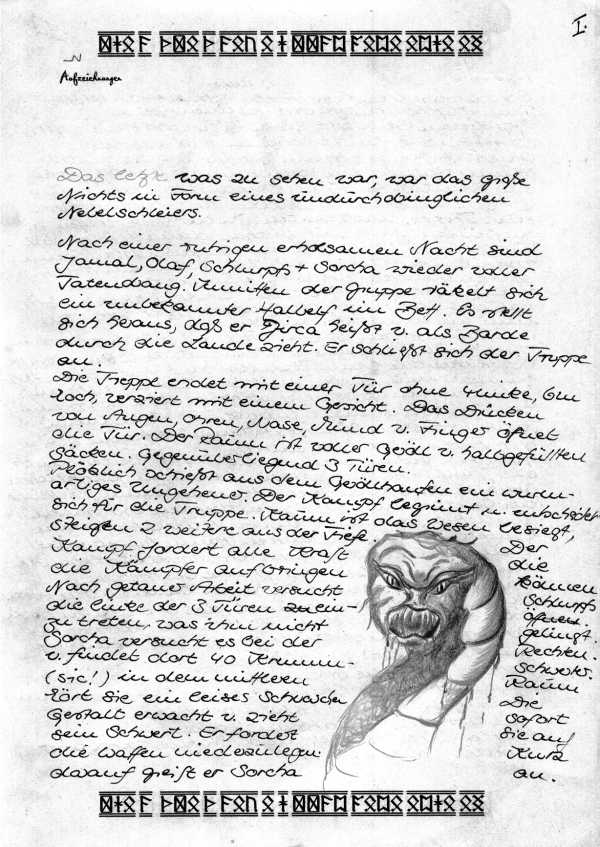 I.
Aufzeichnungen
Das letzte was zu sehen war, war das große
Nichts in Form eines undurchdringlichen
Nebelschleiers.
Nach einer ruhigen erholsamen Nacht sind
Jamal, Olaf, Schlurpfs + Sorcha wieder voller
Tatendrang. Inmitten der Gruppe räkelt sich
ein unbekannter Halbelf im Bett. Es stellt
sich heraus, daß er Jirca heißt u. als Barde
durch die Lande zieht. Er schließt sich der Truppe
an.
Die Treppe endet mit einer Tür ohne Klinke, ohne
Loch, verziert mit einem Gesicht. Das Drücken
von Augen, Ohren, Nase, Mund u. Finger öffnet
die Tür. Der Raum ist voller Geröll u. halbgefüllten
Säcken. Gegenüberliegend 3 Türen.
Plötzlich schießt aus dem Geröllhaufen ein wurm-
artiges Ungeheuer. Der Kampf beginnt u. entscheidet
sich für die Truppe. Kaum ist das Wesen besiegt,
steigen 2 weitere aus der Tiefe. Der
Kampf fordert alle Kraft die
die Kämpfer aufbringen können
Nach getaner Arbeit versucht Schlurpfs
die linke der 3 Türen
zu treten, was ihm nicht gelingt.
Sorcha versucht es bei der Rechten
u. findet dort 40 Krumm- Schwerter
(sic!) in dem mittleren Raum
hört sie ein leises Schnarchen Die
Gestalt erwacht u. zieht sofort
sein Schwert. Er fordert sie auf
die Waffen niederzulegen. Kurz
darauf greift er Sorcha an.